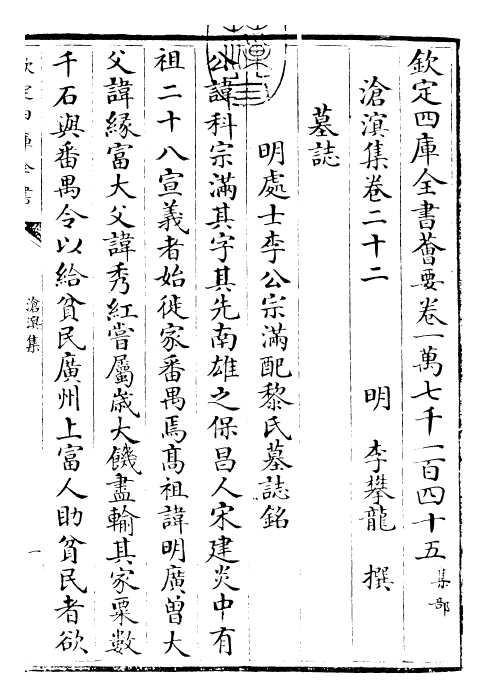 欽定四庫全書薈要卷一萬七千一百四十五集部
滄溟集卷二十二 明 李攀龍 撰
墓誌
明處士李公宗滿配黎氏墓誌銘
公諱科宗滿其字其先南雄之保昌人宋建炎中有
祖二十八宣義者始徙家番禺焉髙祖諱明廣曽大
父諱縁富大父諱秀紅嘗屬歲大饑盡輸其家粟數
千石與番禺令以給貧民廣州上富人助貧民者欲
欽定四庫全書
滄溟集
一